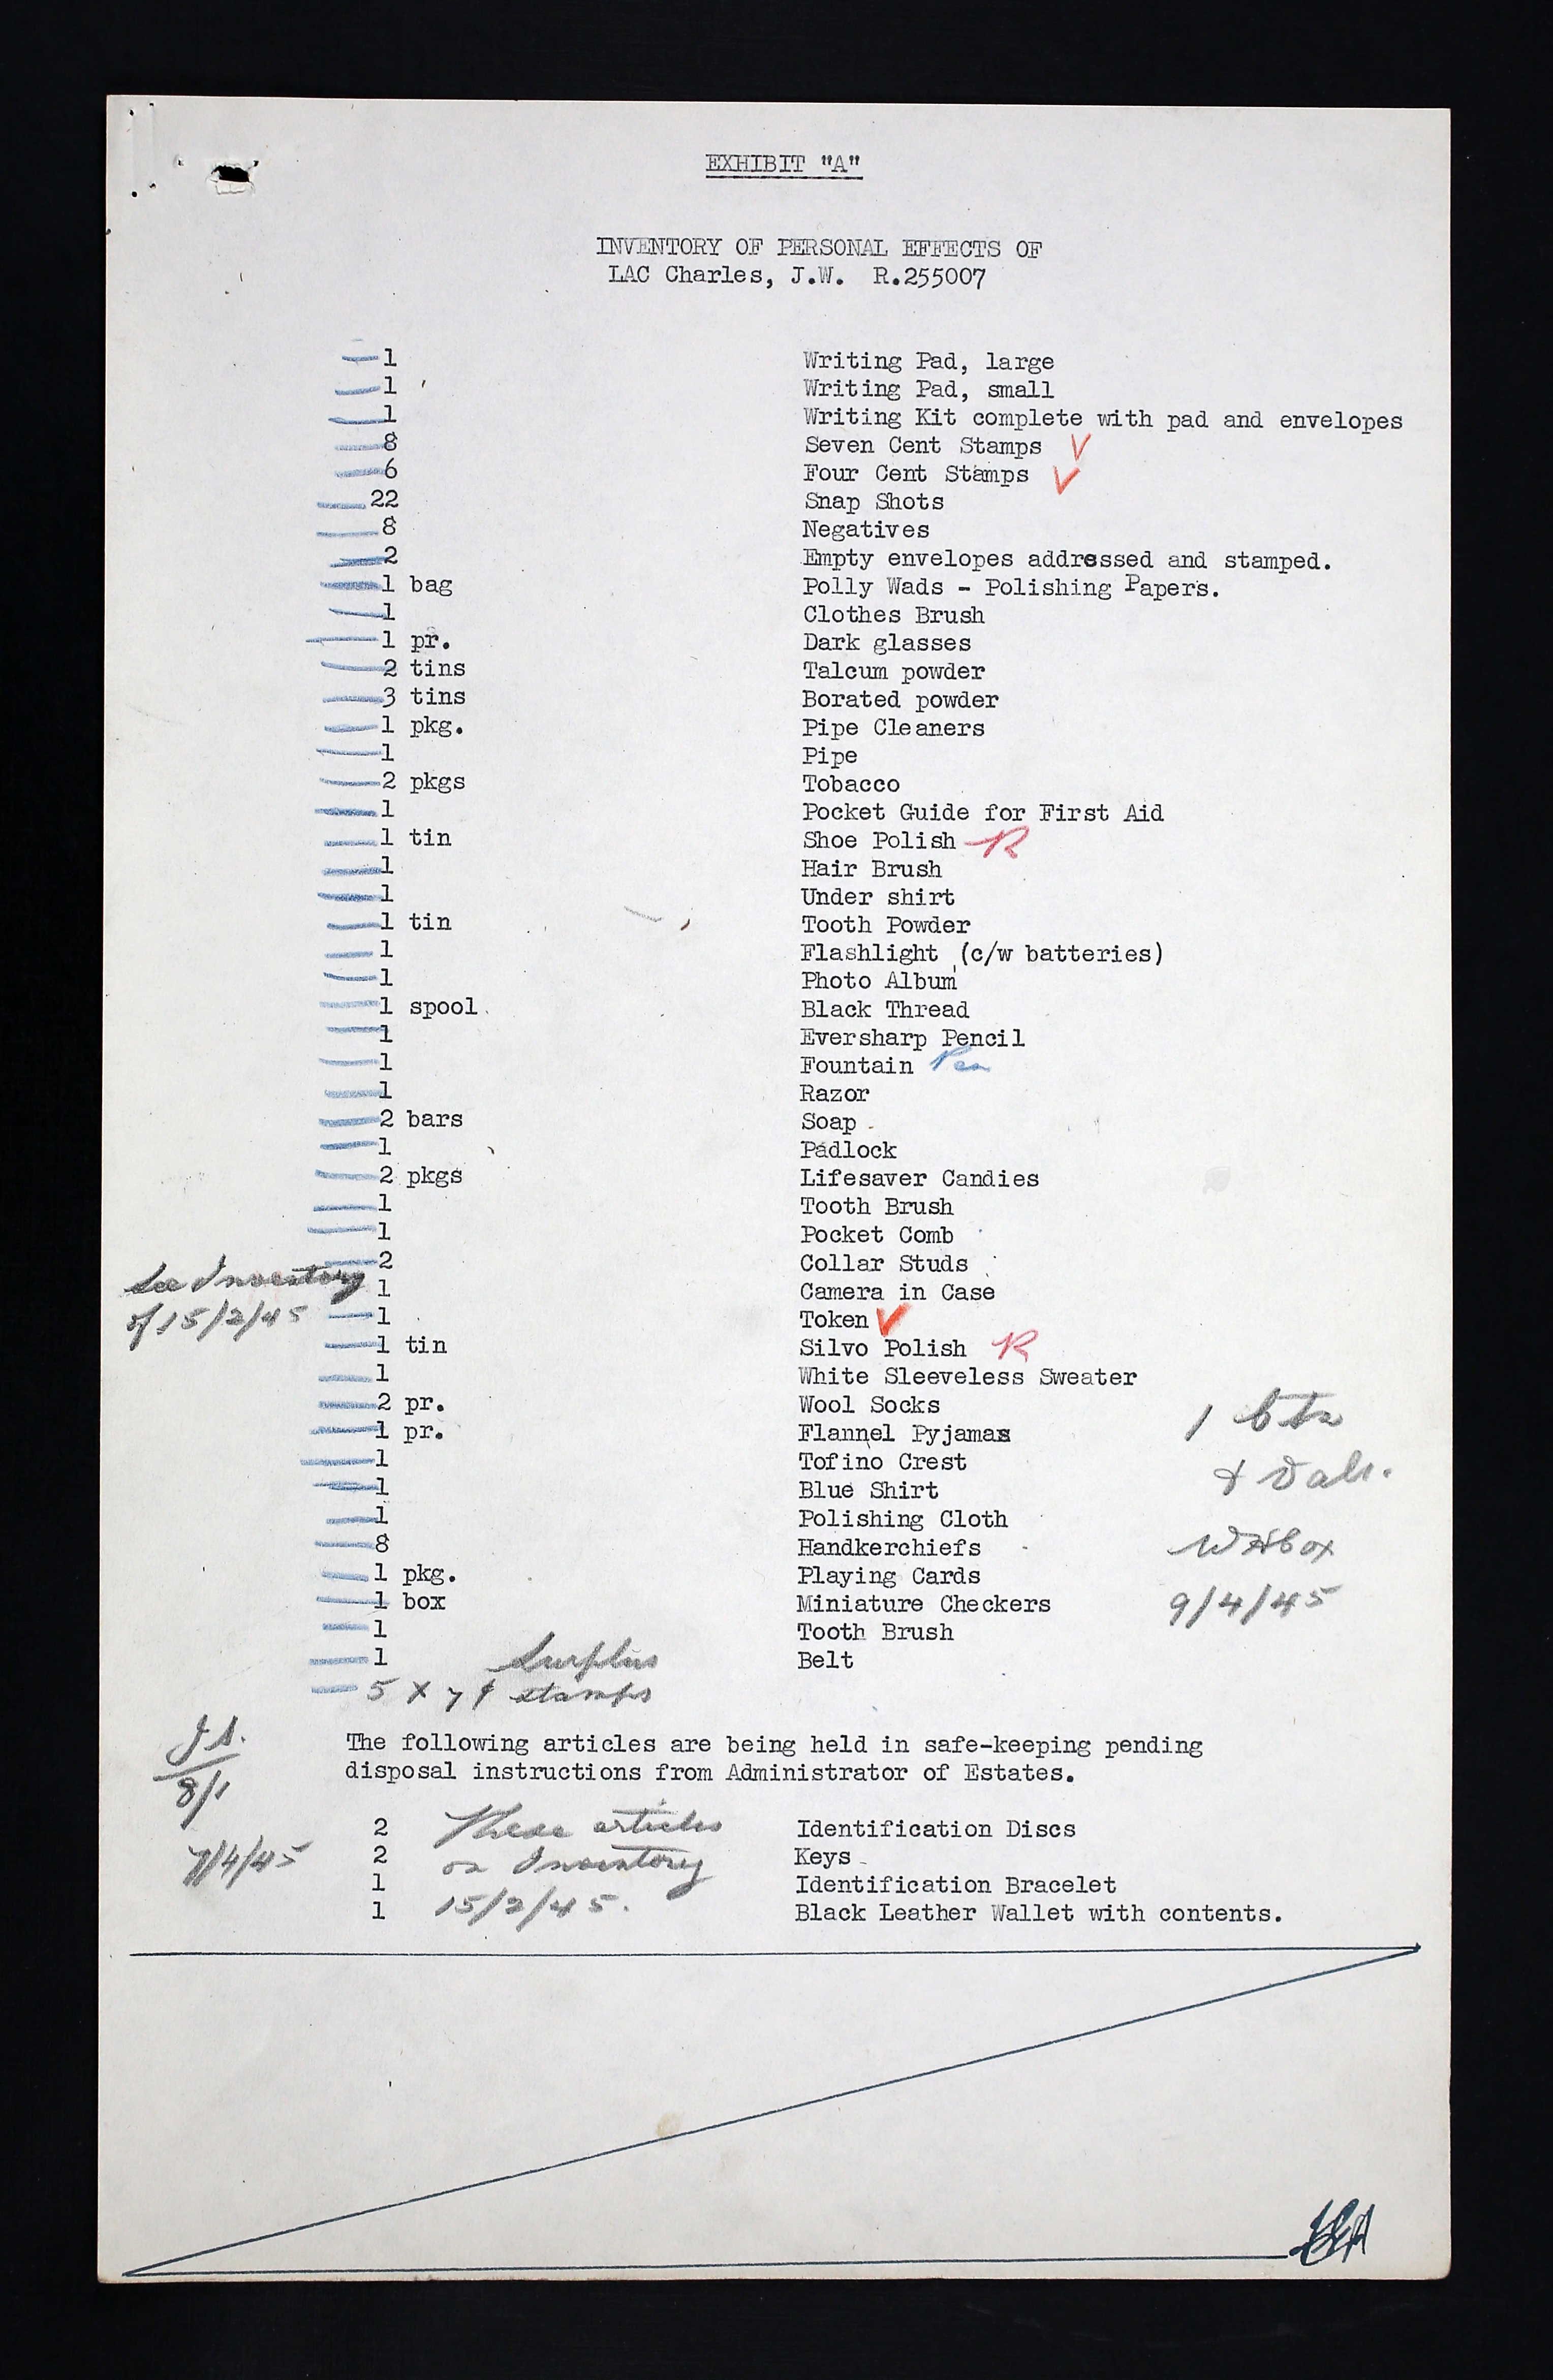 EXHIBIT "A"
INVENTORY OF PERSONAL EFFECTS OF
LAC Charles, J.W. R.255007
1 Writing Pad, large
1 Writing Pad, small
1 Writing Kit complete with pad and envelopes
8 Seven Cent Stamps
6 Four Cent Stamps
22 Snap Shots
8 Negatives
2 Empty envelopes addressed and stamped.
1 bag Polly Wads - Polishing Papers.
1 Clothes Brush
1 pr. Dark glasses
2 tins Talcum powder
3 tins Borated powder
1 pkg. Pipe Cleaners
1 Pipe
2 pkgs Tobacco
1 Pocket Guide for First Aid
1 tin Shoe Polish R
1 Hair Brush
1 Under shirt
1 tin Tooth Powder
1 Flashlight (c/w batteries)
1 Photo Album
1 spool Black Thread
1 Eversharp Pencil
1 Fountain Pen
1 Razor
2 bars Soap
1 Padlock
2 pkgs Lifesaver Candies
1 Tooth Brush
1 Pocket Comb
2 Collar Studs
See Inventory 1 Camera in Case
of 15/2/45 1 Token
1 tin Silvo Polish R
1 White Sleeveless Sweater
2 pr. Wool Socks
1 pr. Flannel Pyjamas
1 Tofino Crest
1 Blue Shirt
1 Polishing Cloth
8 Handkerchiefs
1 pkg. Playing Cards
1 box Miniature Checkers 9/4/45
1 Tooth Brush
1 Belt
Surplus
5 x 7¢ stamps
The following articles are being held in safe-keeping pending
disposal instructions from Administrator of Estates.
8/1
2 These articles Identification Discs
7/4/45 2 on Inventory Keys
1 Identification Bracelet
1 15/2/45. Black Leather Wallet with contents.